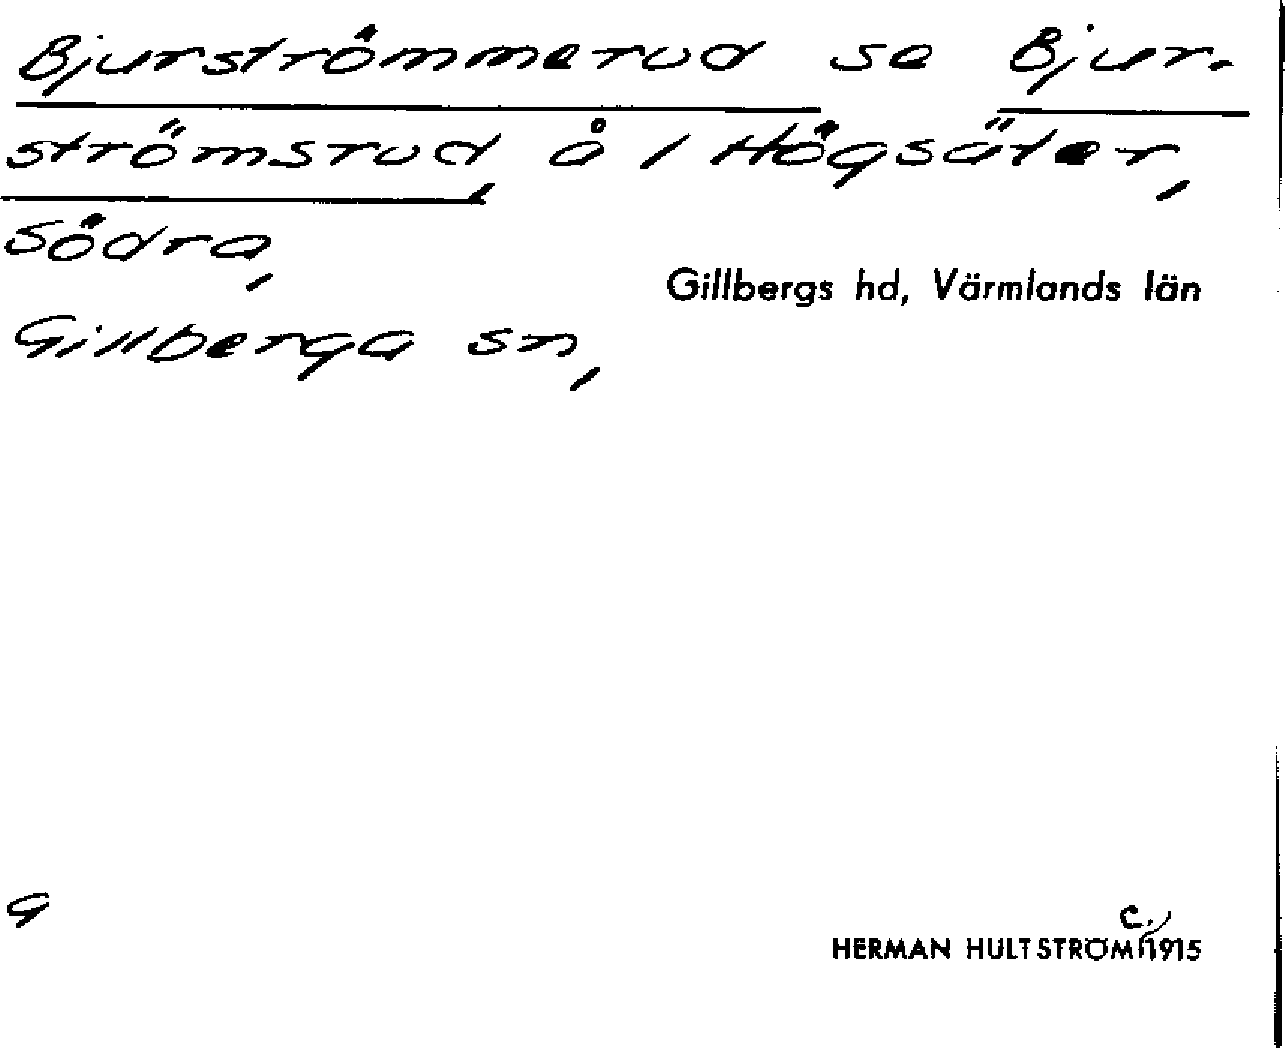 Bjurströmmerud se Bjur-
strömsrud å / Högsäter,
Södra,
Gillbergs hd, Värmlands län
Gillberga sn,
G
c.
HERMAN HULTSTRÖM 1915